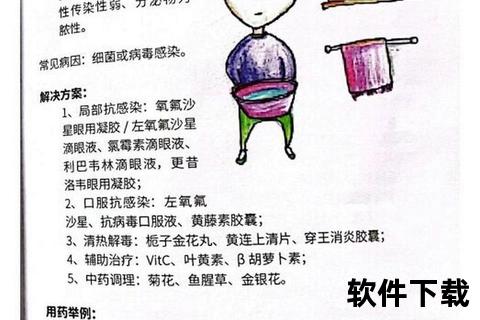 性传染性弱、分泌物为
脓性。
常见病因：细菌或病毒感染。
解决方案：
1、局部抗感染：氧氟沙
星眼用凝胶/左氧氟沙星
滴眼液、氯霉素滴眼液、
利巴韦林滴眼液，更昔
洛韦眼用凝胶；
2、口服抗感染：左氧氟
沙星、抗病毒口服液、黄藤素胶囊；
3、清热解毒：栀子金花丸、黄连上清片、穿王消炎胶囊；
4、辅助治疗：VitC、叶黄素、β胡萝卜素；
5、中药调理：菊花、鱼腥草、金银花。
用药举例：
软件下载